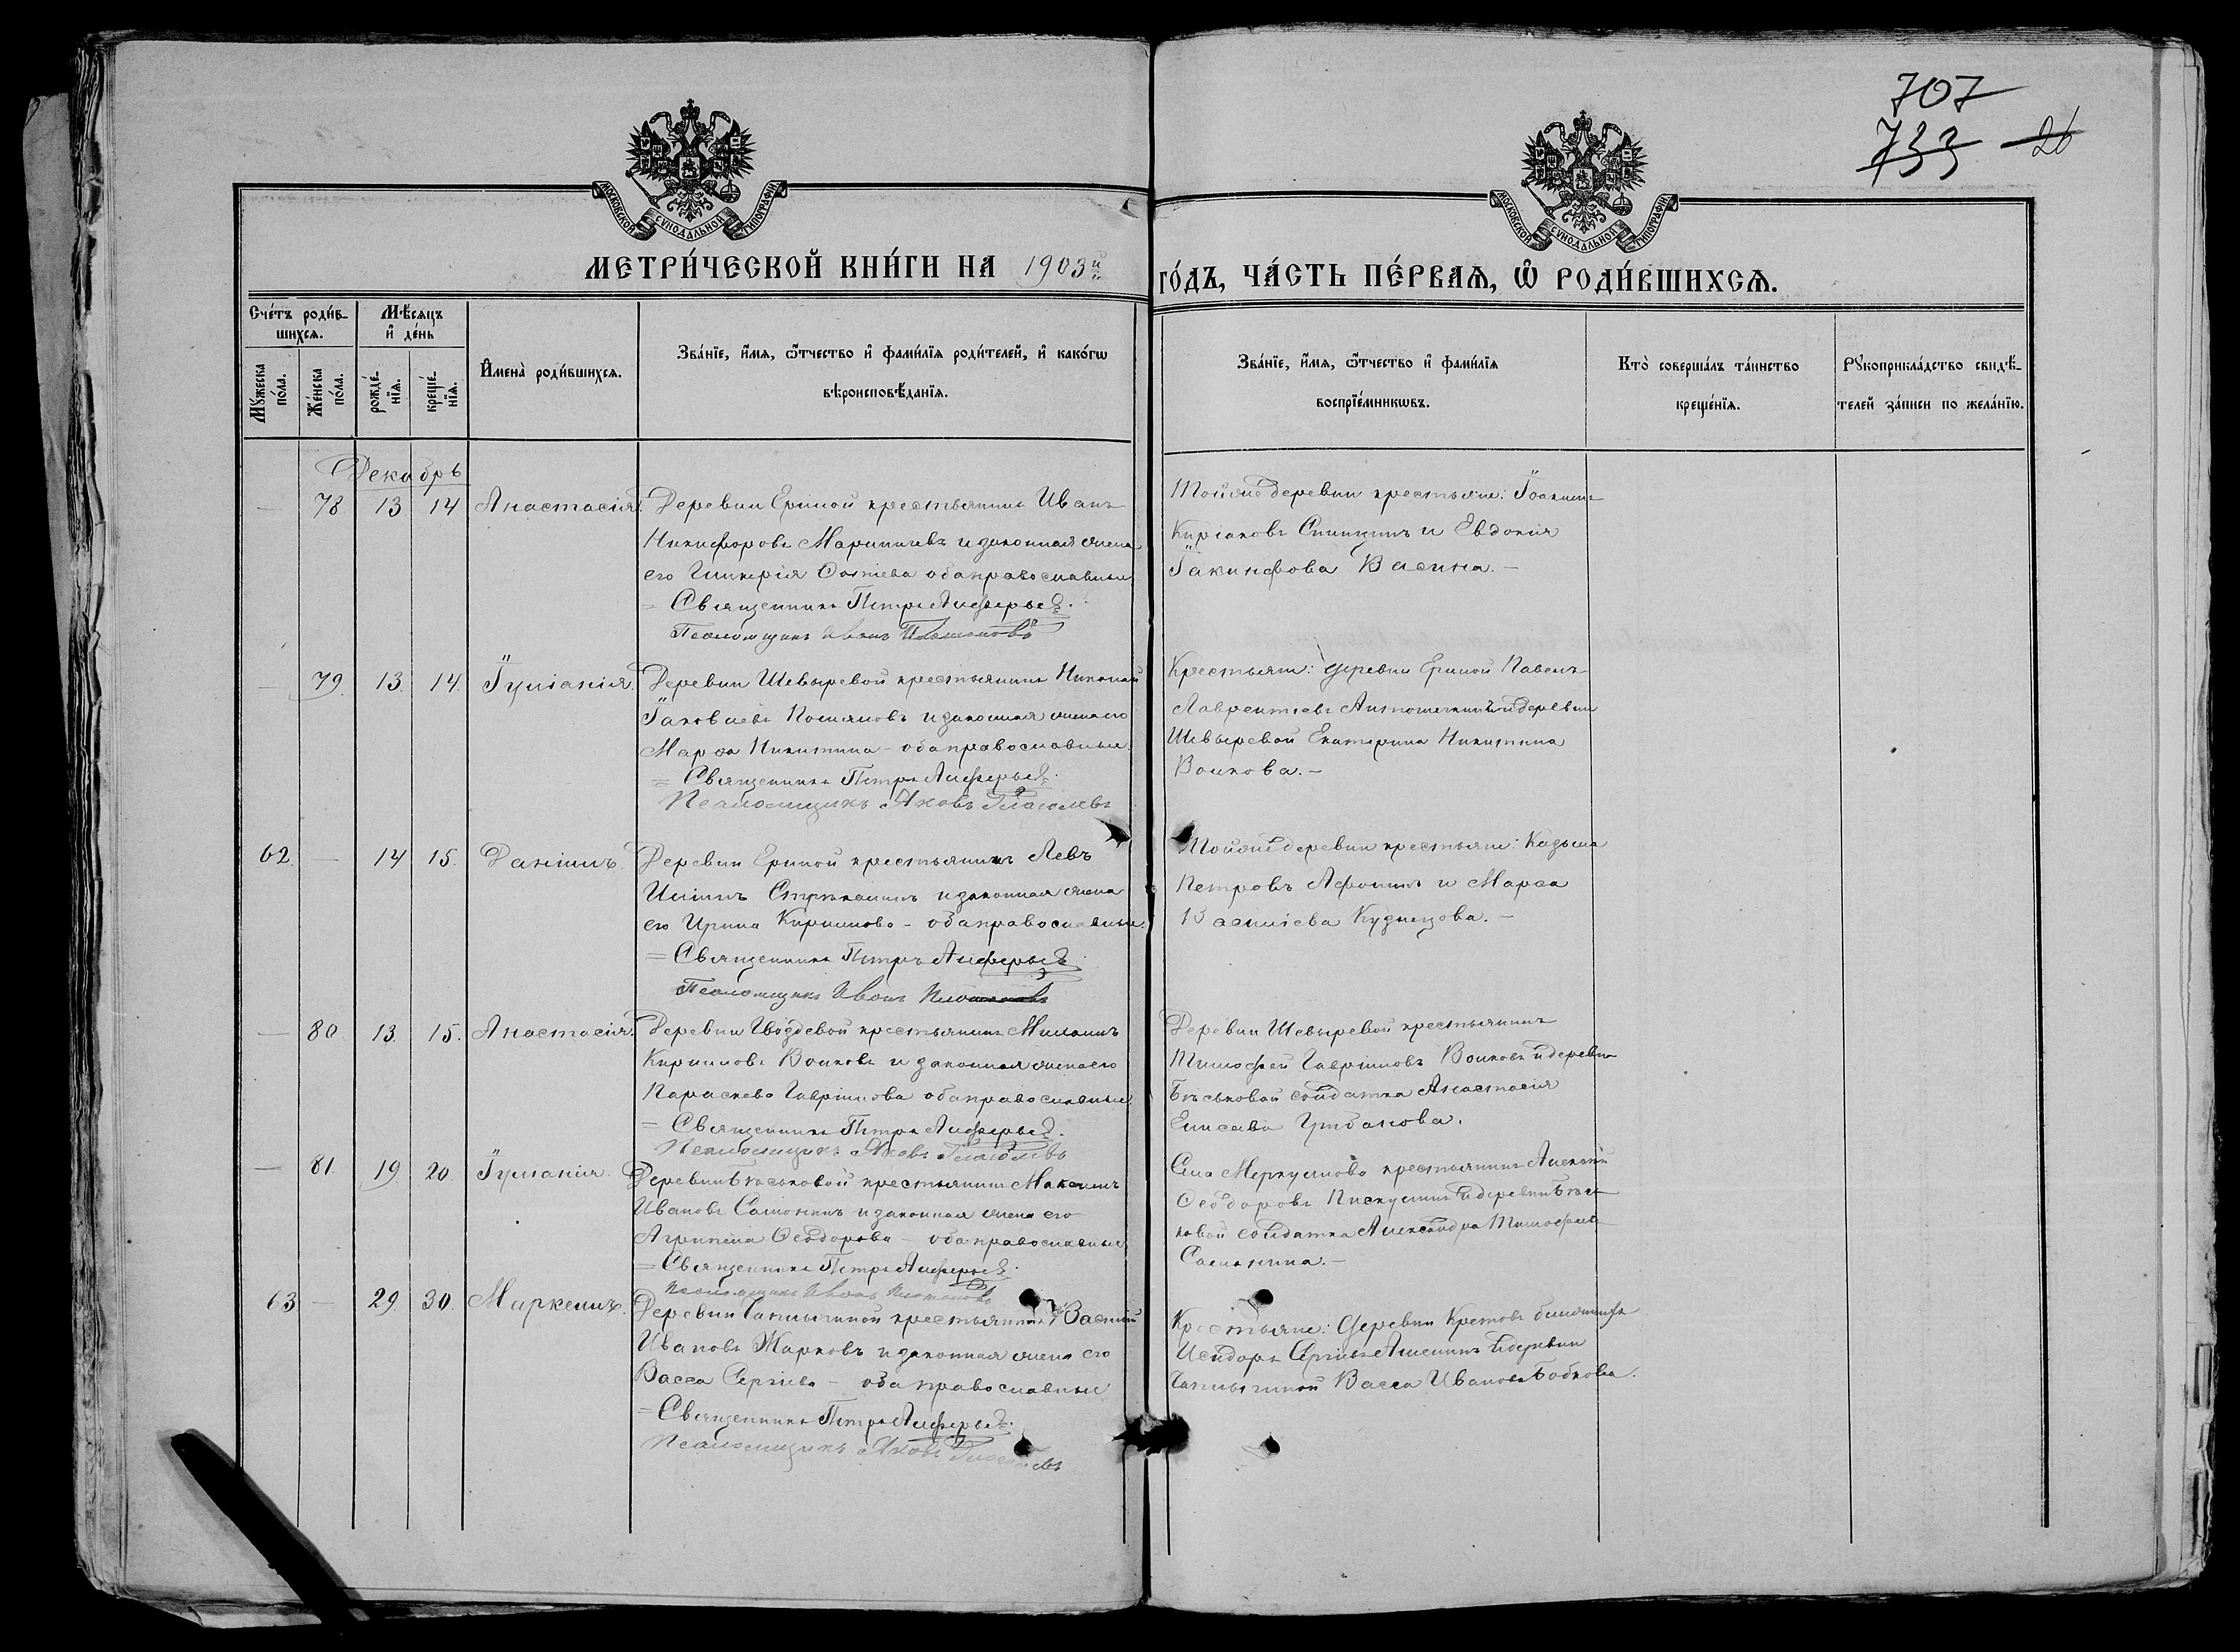 707
733 26
МОСКОВСКОЙ СѴНОДАЛЬНОЙ ТИПОГРАФІИ
МОСКОВСКОЙ СѴНОДАЛЬНОЙ ТИПОГРАФІИ
МЕТРИ́ЧЕСКОЙ КНИ́ГИ НА 1903й
ГО́ДЪ, ЧА́СТЬ ПЕ́РВАѦ, Ѽ РОДИ́ВШИХСѦ.
Сче́тъ роди́в-
шихсѧ.
Мѣ́сѧцъ
и҆ де́нь
Мꙋ́жеска
по́ла.
Же́нска
по́ла.
рожде́-
нїѧ.
креще́-
нїѧ.
И҆мена̀ роди́вшихсѧ.
Зва́нїе, и҆́мѧ, ѻ҆́тчество и҆ фами́лїѧ роди́телей, и҆ како́гѡ
вѣроисповѣ́данїѧ.
Зва́нїе, и҆́мѧ, ѻ҆́тчество и҆ фами́лїѧ
воспрїе́мникѡвъ.
Кто̀ соверша́лъ та́инство
креще́нїѧ.
Рꙋкоприкла́дство свидѣ́-
телей за́писи по жела́нїю.
Декабрь
— 78 13 14 Анастасія. Деревни Ериной крестьянинъ Иванъ
Никифоровъ и законная жена
его Гликерія оба православные
= Священникъ Петръ Алферьев.
Псаломщикъ Иванъ Платоновъ
Тойже деревни крестьяне: Іоакимъ
Киріаковъ и Евдокія
Іакинфова Васина. —
— 79. 13. 14. Іуліанія. Деревни Шевыревой крестьянинъ Николай
Іаковлевъ и законная жена его
Марѳа Никитина – оба православные.
= Священникъ Петръ Алферьев.
Псаломщикъ Яковъ Глаголевъ
Крестьяне: деревни Ериной Павелъ
Лаврентіевъ и деревни
Шевыревой Екатерина Никитина
Волкова. —
62. — 14 15. Даніилъ. Деревни Ериной крестьянинъ Левъ
Иліинъ и законная жена
его Ирина Кириллова – оба православные.
= Священникъ Петръ Алферьев.
Псаломщикъ Иванъ Платоновъ
Тойже деревни крестьяне: Кадьма
Петровъ Афонинъ и Марѳа
Василіева Кузнецова. —
— 80. 13. 15. Анастасія. Деревни Гвоздевой крестьянинъ
Кирилловъ Волковъ и законная жена его
Параскева Гавріилова оба православные.
= Священникъ Петръ Алферьев.
Псаломщикъ Яковъ Глаголевъ
Деревни Шевыревой крестьянинъ
Тимофей Гавріиловъ Волковъ и деревни
солдатка Анастасія
Елисева Урибанова.
— 81. 19. 20. Іуліанія. Деревни крестьянинъ Максимъ
Ивановъ и законная жена его
Агрипена Ѳеодорова – оба православные.
= Священникъ Петръ Алферьев.
Псаломщикъ Иванъ Платоновъ
Села Меркулова крестьянинъ Алексій
Ѳеодоровъ Пискулинъ и деревни
ковой солдатка Александра
63 — 29. 30. Маркеллъ. Деревни крестьянинъ Василій
Ивановъ Жарковъ и законная жена его
Васса Сергіева – оба православные
= Священникъ Петръ Алферьев.
Псаломщикъ Яковъ Глаголевъ
Крестьяне: деревни
Исидоръ Сергіевъ и деревни
Васса Иванова Бобкова.